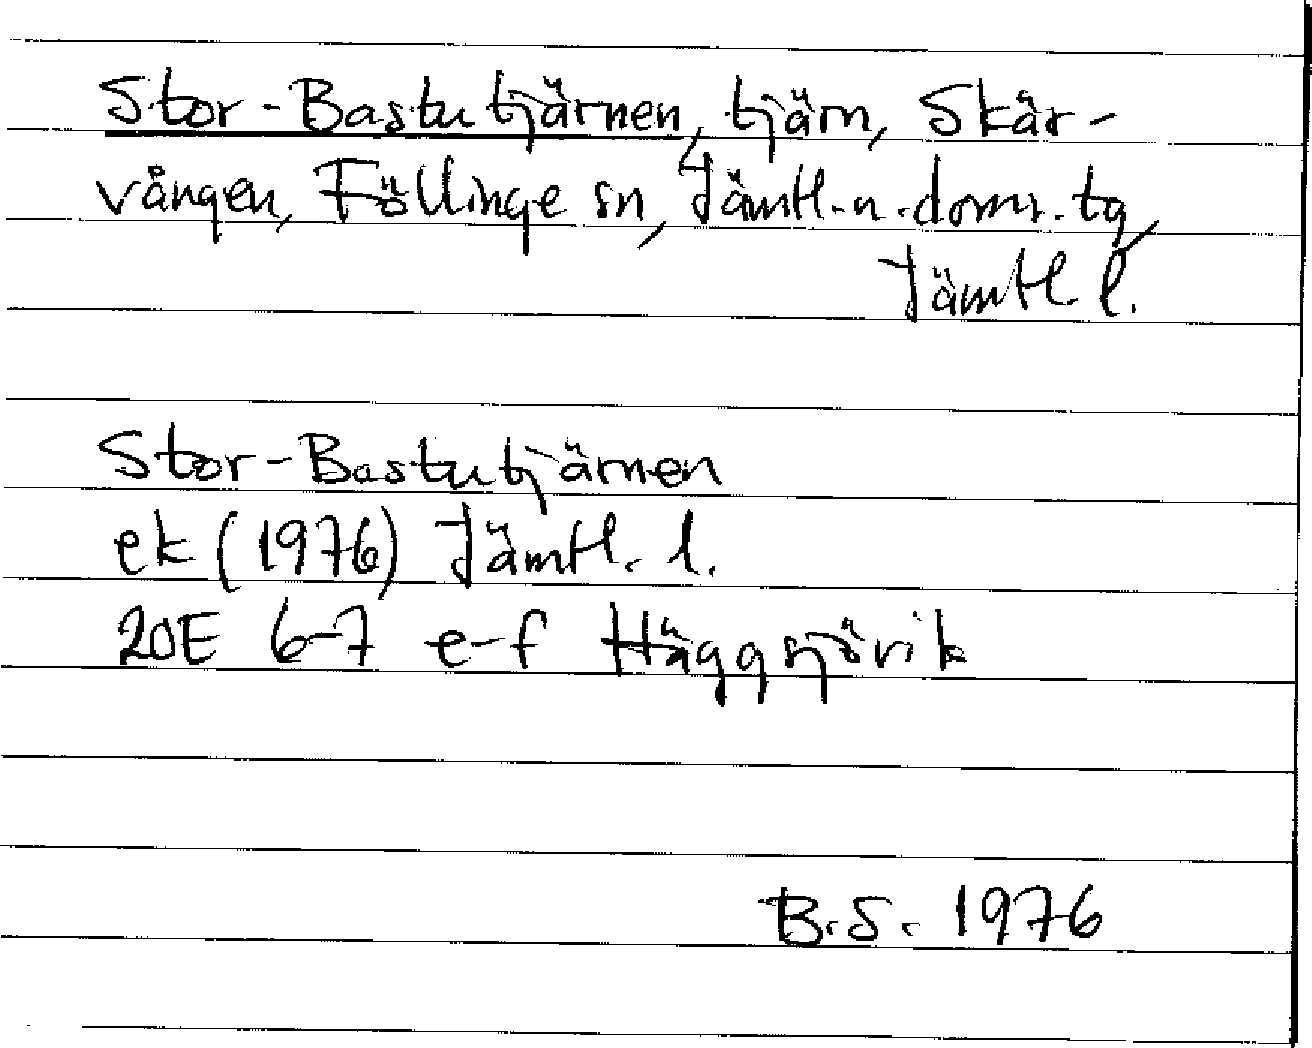 Stor-Bastutjärnen, tjärn, Skär-
vången, Föllinge sn, Jämtl.n.doms.tg,
Jämtl. l.
Stor-Bastutjärnen
ek (1976) Jämtl. l.
20E 6-7 e-f Häggsjövik
B.S. 1976